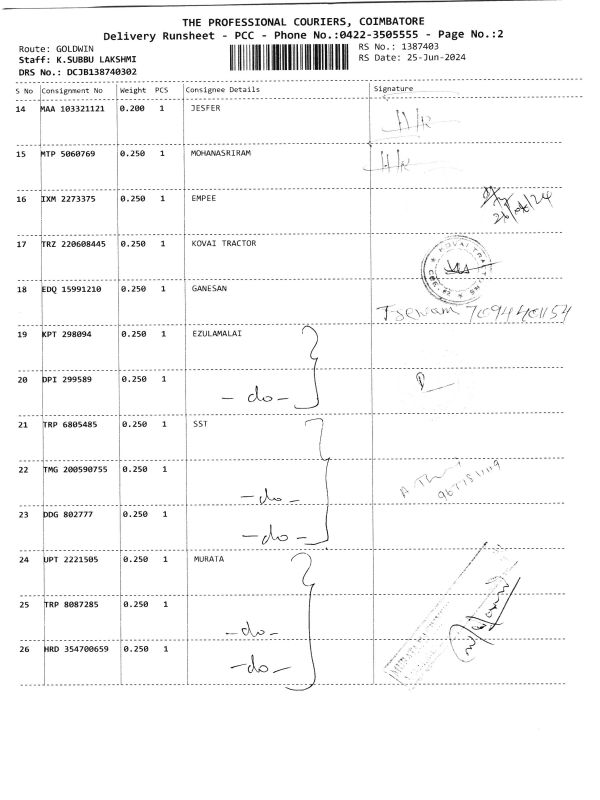 THE PROFESSIONAL COURIERS, COIMBATORE
Delivery Runsheet - PCC - Phone No.:0422-3505555 - Page No.:2
Route: GOLDWIN
Staff: K.SUBBU LAKSHMI
DRS No.: DCJB138740302
RS No.: 1387403
RS Date: 25-Jun-2024
S No Consignment No Weight PCS Consignee Details Signature
14 MAA 103321121 0.200 1 JESFER
15 MTP 5060769 0.250 1 MOHANASRIRAM
16 IXM 2273375 0.250 1 EMPEE
17 TRZ 220608445 0.250 1 KOVAI TRACTOR
18 EDQ 15991210 0.250 1 GANESAN
19 KPT 298094 0.250 1 EZULAMALAI
20 DPI 299589 0.250 1 -do-
21 TRP 6805485 0.250 1 SST
22 TMG 200590755 0.250 1 -do-
23 DDG 802777 0.250 1 -do-
24 UPT 2221505 0.250 1 MURATA
25 TRP 8087285 0.250 1 -do-
26 HRD 354700659 0.250 1 -do-